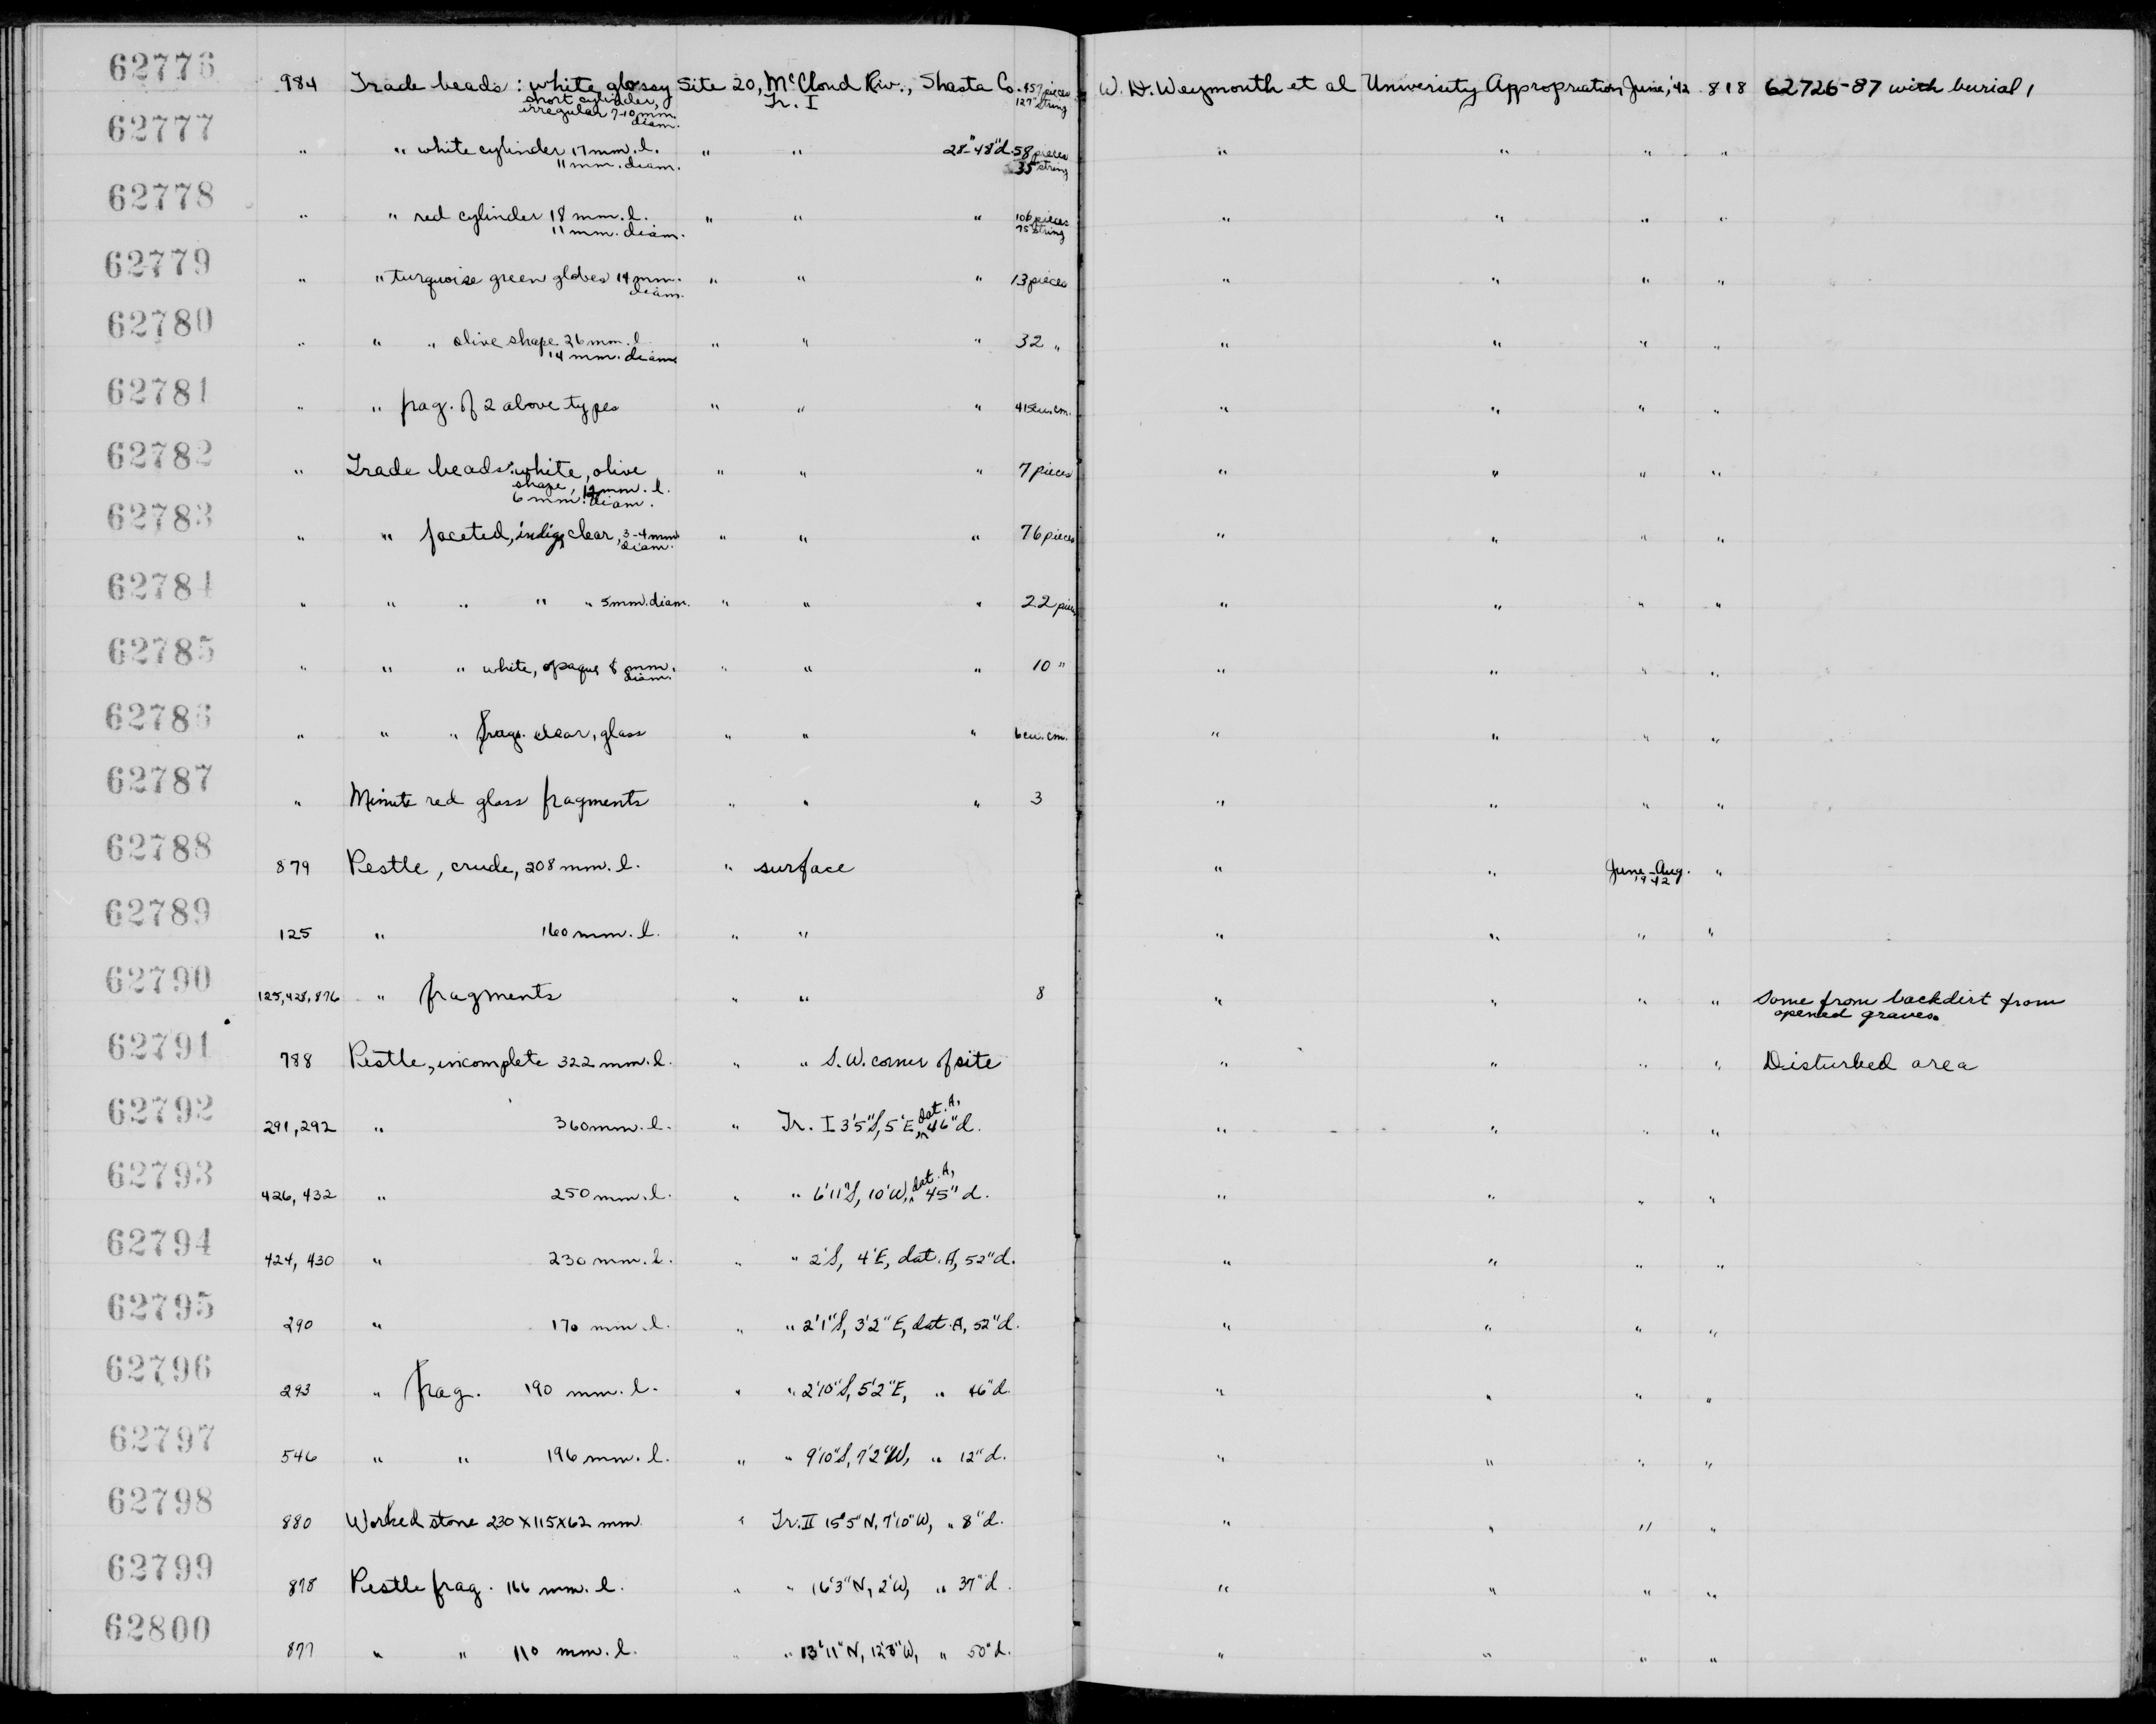 62776 984 Trade beads: white, glossy Site 20, McCloud Riv., Shasta Co. 457 pieces W. D. Weymouth et al University Appropriation June, '42 818 62726-87 with burial 1
short cylinder, Tr. I 127" string
irregular 7-10 mm.
diam.
62777 " " white cylinder 17 mm. l. " " 28"-48"d. 58 pieces " " " "
11 mm. diam. 35" string
62778 " " red cylinder 18 mm. l. " " " 106 pieces " " " "
11 mm. diam. 75" string
62779 " " turquoise green globes 14 mm. " " " 13 pieces " " " "
diam.
62780 " " " olive shape 26 mm. l. " " " 32 " " " " "
14 mm. diam.
62781 " " frag. of 2 above types " " " 415 cu. cm. " " " "
62782 " Trade beads: white, olive " " " 7 pieces " " " "
shape, 12 mm. l.
6 mm. diam.
62783 " " faceted, indigo, clear, 3-4 mm. " " " 76 pieces " " " "
diam.
62784 " " " " " 5 mm. diam. " " " 22 pieces " " " "
62785 " " " white, opaque 8 mm. " " " 10 " " " " "
diam.
62786 " " " frags. clear, glass " " " 6 cu. cm. " " " "
62787 " Minute red glass fragments " " " 3 " " " "
62788 879 Pestle, crude, 208 mm. l. " surface " " June-Aug. "
1942
62789 125 " 160 mm. l. " " " " " "
62790 125, 428, 876 " fragments " " 8 " " " " Some from backdirt from
opened graves.
62791 788 Pestle, incomplete 322 mm. l. " " S.W. corner of site " " " " Disturbed area
62792 291, 292 " 360 mm. l. " Tr. I 3'5"S, 5'E, dat. A, 46"d. " " " "
62793 426, 432 " 250 mm. l. " " 6'11"S, 10'W, dat. A, 45"d. " " " "
62794 424, 430 " 230 mm. l. " " 2'S, 4'E, dat. A, 52"d. " " " "
62795 290 " 170 mm. l. " " 2'1"S, 3'2"E, dat. A, 52"d. " " " "
62796 293 " frag. 190 mm. l. " " 2'10"S, 5'2"E, " 46"d. " " " "
62797 546 " " 196 mm. l. " " 9'10"S, 7'2"W, " 12"d. " " " "
62798 880 Worked stone 230 x 115 x 62 mm. " Tr. II 15'5"N, 7'10"W, " 8"d. " " " "
62799 878 Pestle frag. 166 mm. l. " " 16'3"N, 2'W, " 37"d. " " " "
62800 877 " " 110 mm. l. " " 13'11"N, 12'8"W, " 50"d. " " " "